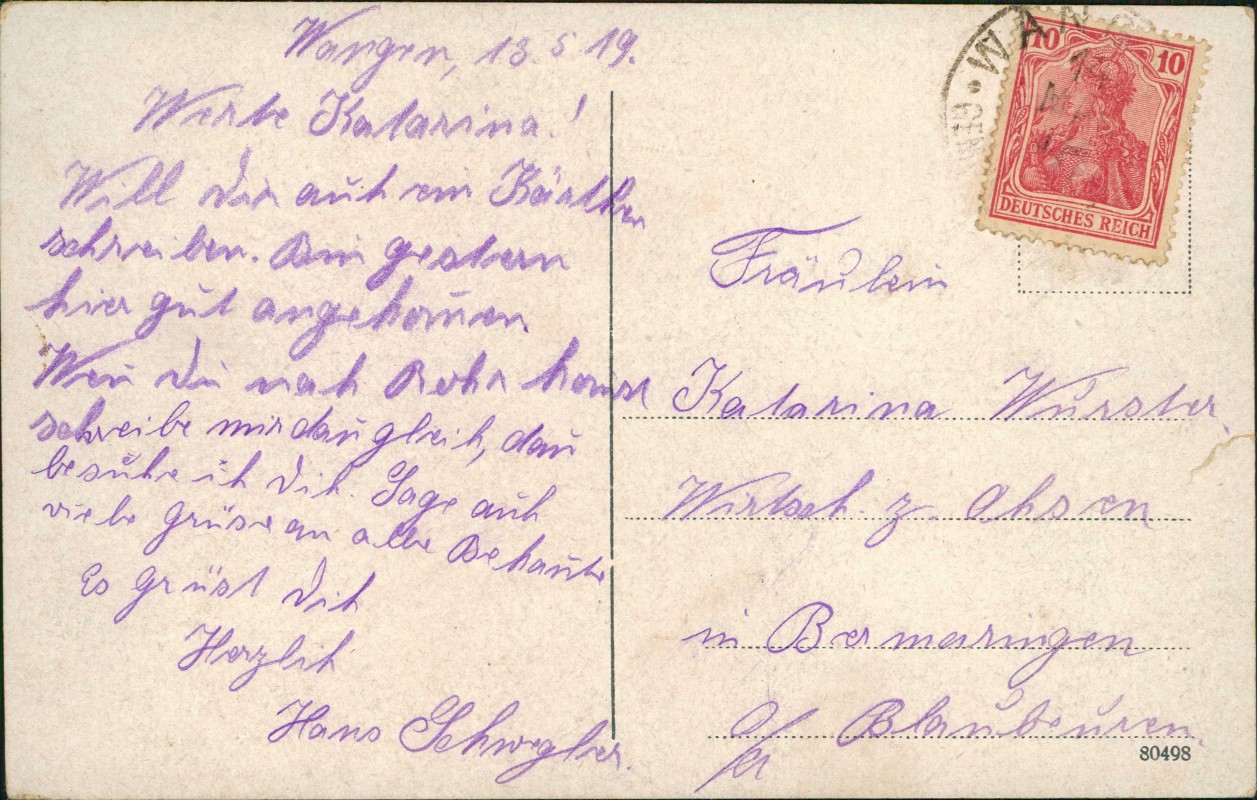 Wangen, 13.5.19.
Werte Katarina!
Will dir auch ein Kärtchen
schreiben. Bin gestern
hier gut angekom̄en.
Wen̄ du nach Rohr kom̄st
schreibe mir dan̄ gleich, dan̄
besuche ich dich. Sage auch
viele Grüse an alle Bekan̄te
Es grüst dich
Herzlich
Hans Schwegler.
WANG
GEM
10
10
DEUTSCHES REICH
Fräulein
Katarina Wurster.
Wirtsch. z. Ochsen
in Bermaringen
O/A Blaubeuren.
80498